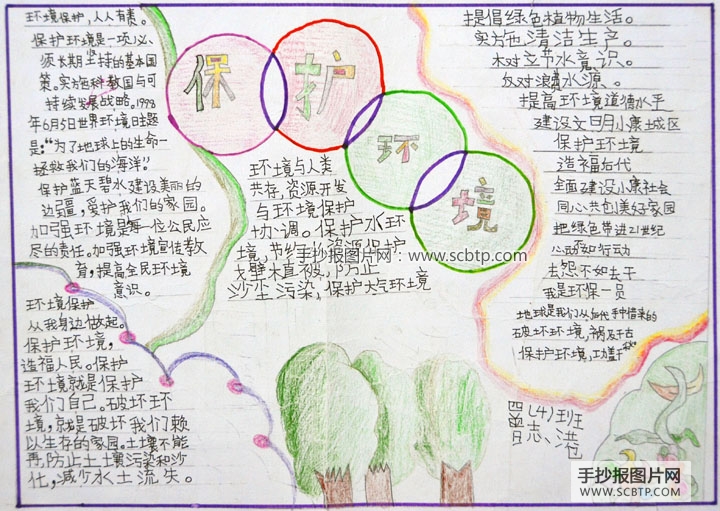 环境保护,人人有责。
保护环境是一项必
须长期坚持的基本国
策。实施科教国与可
持续发展战略。1998
年6月5日世界环境日主题
是:“为了地球上的生命—
拯救我们的海洋”
保护蓝天碧水建设美丽的
边疆,爱护我们的家园。
加强环境是每一位公民应
尽的责任。加强环境宣传教
育,提高全民环境
意识。
环境保护
从我身边做起。
保护环境,
造福人民。保护
环境就是保护
我们自己。破坏环
境,就是破坏我们赖
以生存的家园。土壤不能
再防止土壤污染和沙
化,减少水土流失。
保护环境
环境与人类
共存,资源开发
与环境保护
协调。保护水环
境,节约水资源保护
戈壁植被,防止
沙尘污染,保护大气环境
手抄报图片网:www.scbtp.com
提倡绿色植物生活。
实施清洁生产。
树立节水意识。
反对浪费水源。
提高环境道德水平
建设文明小康城区
保护环境
造福后代
全面建设小康社会
同心共创美好家园
把绿色带进21世纪
心动不如行动
去怨不如去干
我是环保一员
地球是我们从后代手中借来的
破坏环境,祸及千古
保护环境,功盖千秋
四(4)班
手抄报图片网
WWW.SCBTP.COM